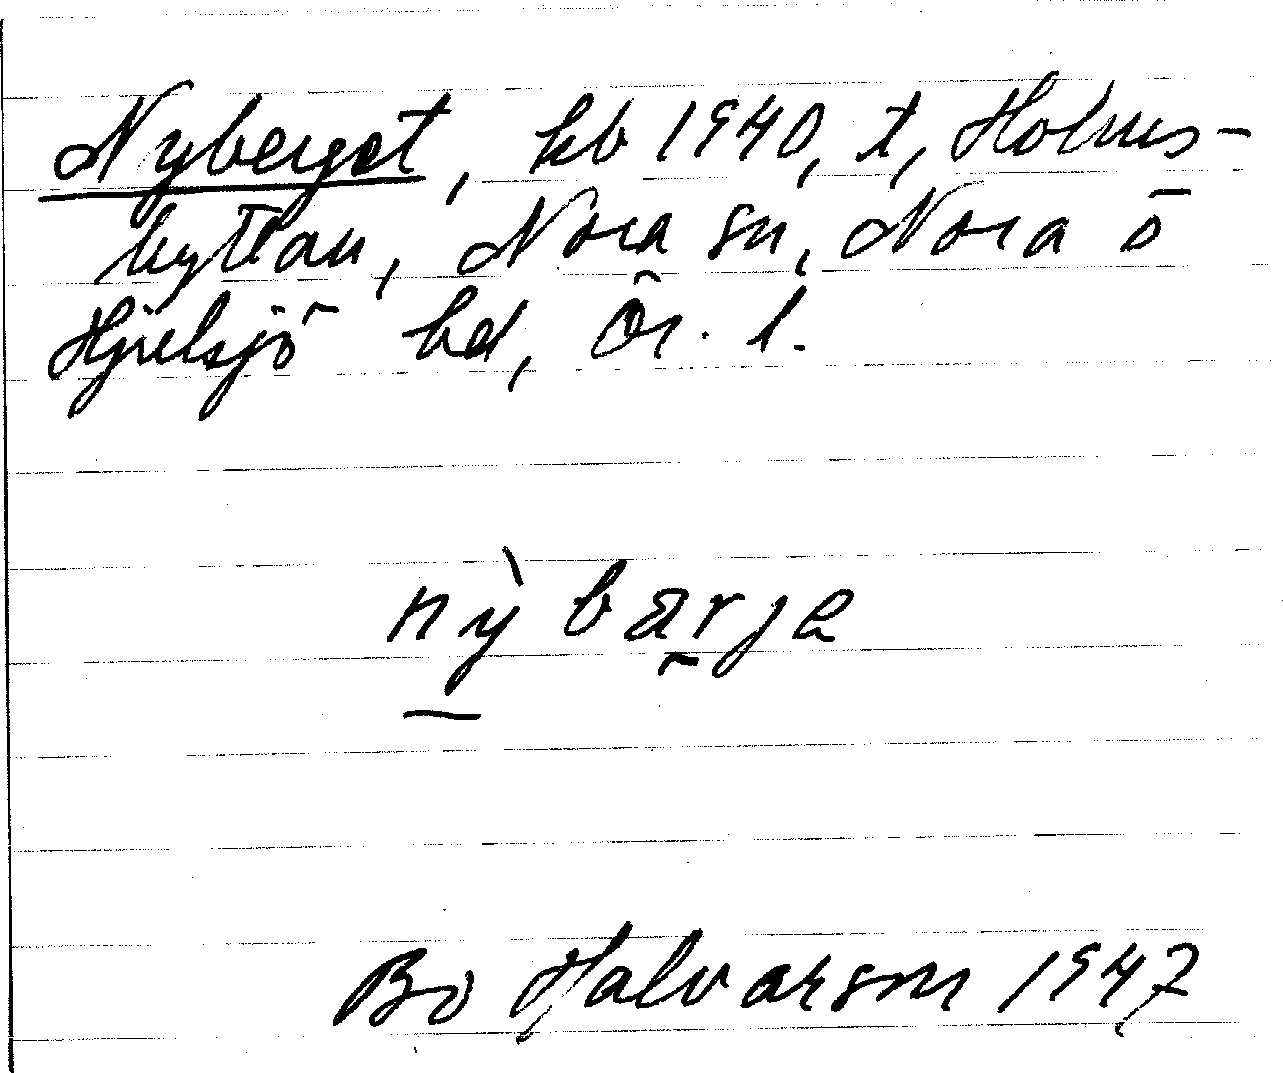 Nyberget, kb 1940, t, Holms-
hyttan, Nora sn, Nora ō
Hjulsjö hd, Ör. l.
nỳbärje
Bo Halvarson 1947